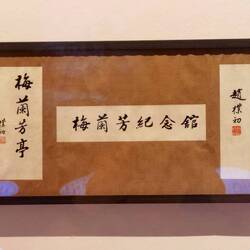 梅蘭芳亭
樸初
梅蘭芳紀念舘
趙樸初